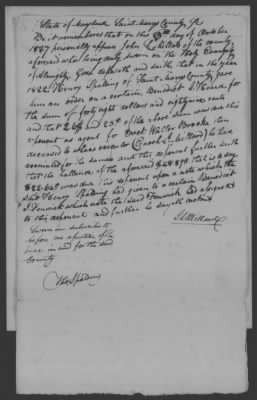 State of Maryland Saint Marys County Sct
Be it remembered that on this day of October
1827 personally appears John L Millard of the county
aforesaid who being duly sworn on the Holy Evangely
of Almighty God deposeth and saith, that in the year
1822 Henry Spalding of Saint Marys County gave
him an order on a certain Benedict I. Fenwick for
the sum of forty eight dollars and eighty nine cents
and that of the above sum was due this
deponent as agent for Walter Brooke then
deceased to whose executor he has
accounted for the same and this deponent further saith
that the ballance of the aforesaid $48.89 that is to say
$22.64 was due this deponent upon a note which the
said Henry Spalding had given to a certain Benedict
I Fenwick which note the said Fenwick had assigned
to this deponent and further he sayeth not
J L Millard
Sworn and subscribed to
before me a Justice of the
peace in and for the said
County
Tho Spalding